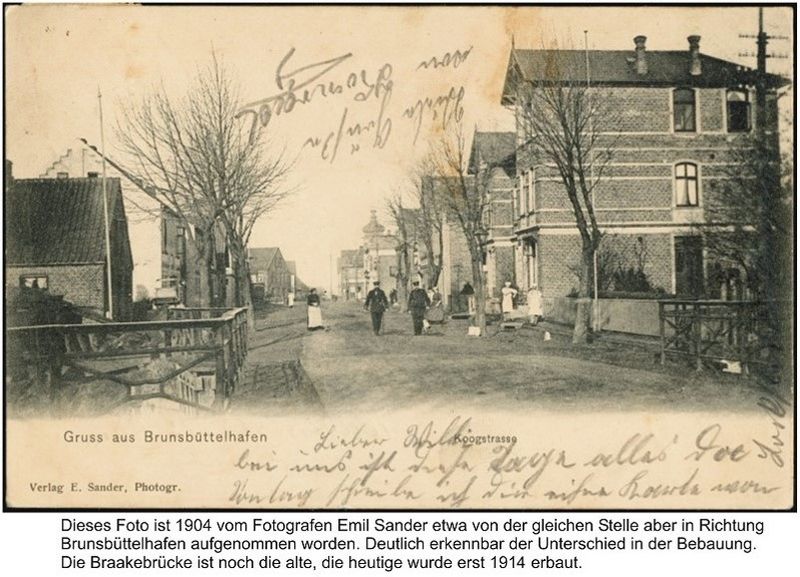 Gruss aus Brunsbüttelhafen
Koogstrasse
Lieber Willi
bei uns ist diese Tage alles
Vontag schreibe ich dir eine Karte von
Verlag E. Sander, Photogr.
Dieses Foto ist 1904 vom Fotografen Emil Sander etwa von der gleichen Stelle aber in Richtung
Brunsbüttelhafen aufgenommen worden. Deutlich erkennbar der Unterschied in der Bebauung.
Die Braakebrücke ist noch die alte, die heutige wurde erst 1914 erbaut.